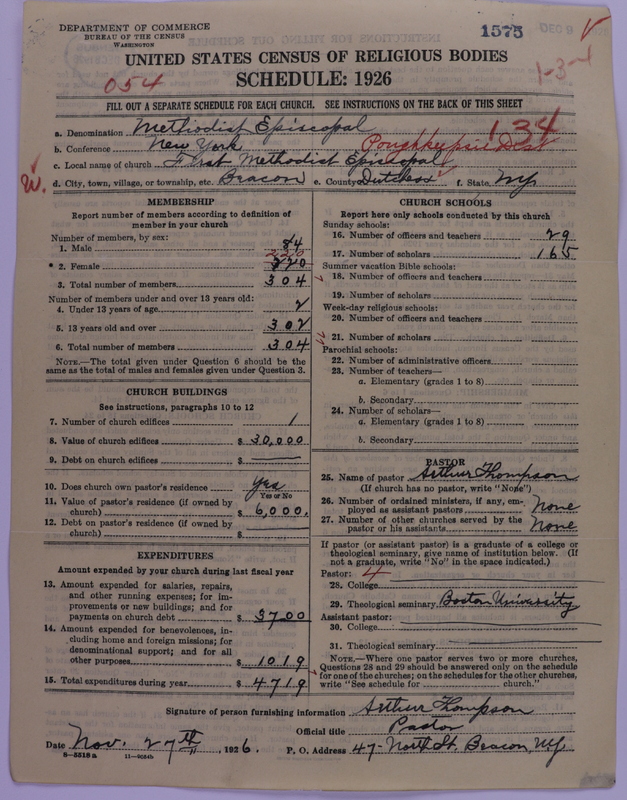 DEPARTMENT OF COMMERCE
BUREAU OF THE CENSUS
WASHINGTON
1575
UNITED STATES CENSUS OF RELIGIOUS BODIES
SCHEDULE: 1926
054
1-3-4
FILL OUT A SEPARATE SCHEDULE FOR EACH CHURCH. SEE INSTRUCTIONS ON THE BACK OF THIS SHEET
134
a. Denomination Methodist Episcopal
b. Conference New York Poughkeepsie Dist
c. Local name of church First Methodist Episcopal
W.
d. City, town, village, or township, etc. Beacon e. County Dutchess f. State NY
MEMBERSHIP
Report number of members according to definition of member in your church
Number of members, by sex:
1. Male 84
220
* 2. Female
3. Total number of members 304
Number of members under and over 13 years old:
4. Under 13 years of age 2
5. 13 years old and over 302
6. Total number of members 304
NOTE.—The total given under Question 6 should be the same as the total of males and females given under Question 3.
CHURCH BUILDINGS
See instructions, paragraphs 10 to 12
7. Number of church edifices 1
8. Value of church edifices $ 30,000
9. Debt on church edifices $
10. Does church own pastor's residence Yes
Yes or No
11. Value of pastor's residence (if owned by
church) $ 6,000.
12. Debt on pastor's residence (if owned by
church) $
EXPENDITURES
Amount expended by your church during last fiscal year
13. Amount expended for salaries, repairs,
and other running expenses; for im-
provements or new buildings; and for
payments on church debt $ 3700
14. Amount expended for benevolences, in-
cluding home and foreign missions; for
denominational support; and for all
other purposes $ 1019
15. Total expenditures during year $ 4719
CHURCH SCHOOLS
Report here only schools conducted by this church
Sunday schools:
16. Number of officers and teachers 29
17. Number of scholars 165
Summer vacation Bible schools:
18. Number of officers and teachers
19. Number of scholars
Week-day religious schools:
20. Number of officers and teachers
21. Number of scholars
Parochial schools:
22. Number of administrative officers
23. Number of teachers—
a. Elementary (grades 1 to 8)
b. Secondary
24. Number of scholars—
a. Elementary (grades 1 to 8)
b. Secondary
PASTOR
25. Name of pastor Arthur Thompson
(If church has no pastor, write "None")
26. Number of ordained ministers, if any, em-
ployed as assistant pastors None
27. Number of other churches served by the
pastor or his assistants None
If pastor (or assistant pastor) is a graduate of a college or
theological seminary, give name of institution below. (If
not a graduate, write "No" in the space indicated.)
Pastor: 4
28. College
29. Theological seminary Boston University
Assistant pastor:
30. College
31. Theological seminary
NOTE.—Where one pastor serves two or more churches,
Questions 28 and 29 should be answered only on the schedule
for one of the churches; on the schedules for the other churches,
write "See schedule for church."
Signature of person furnishing information Arthur Thompson
Official title Pastor
Date Nov. 27th, 1926. P. O. Address 47 North St. Beacon, NY
8—5518a 11—9054b